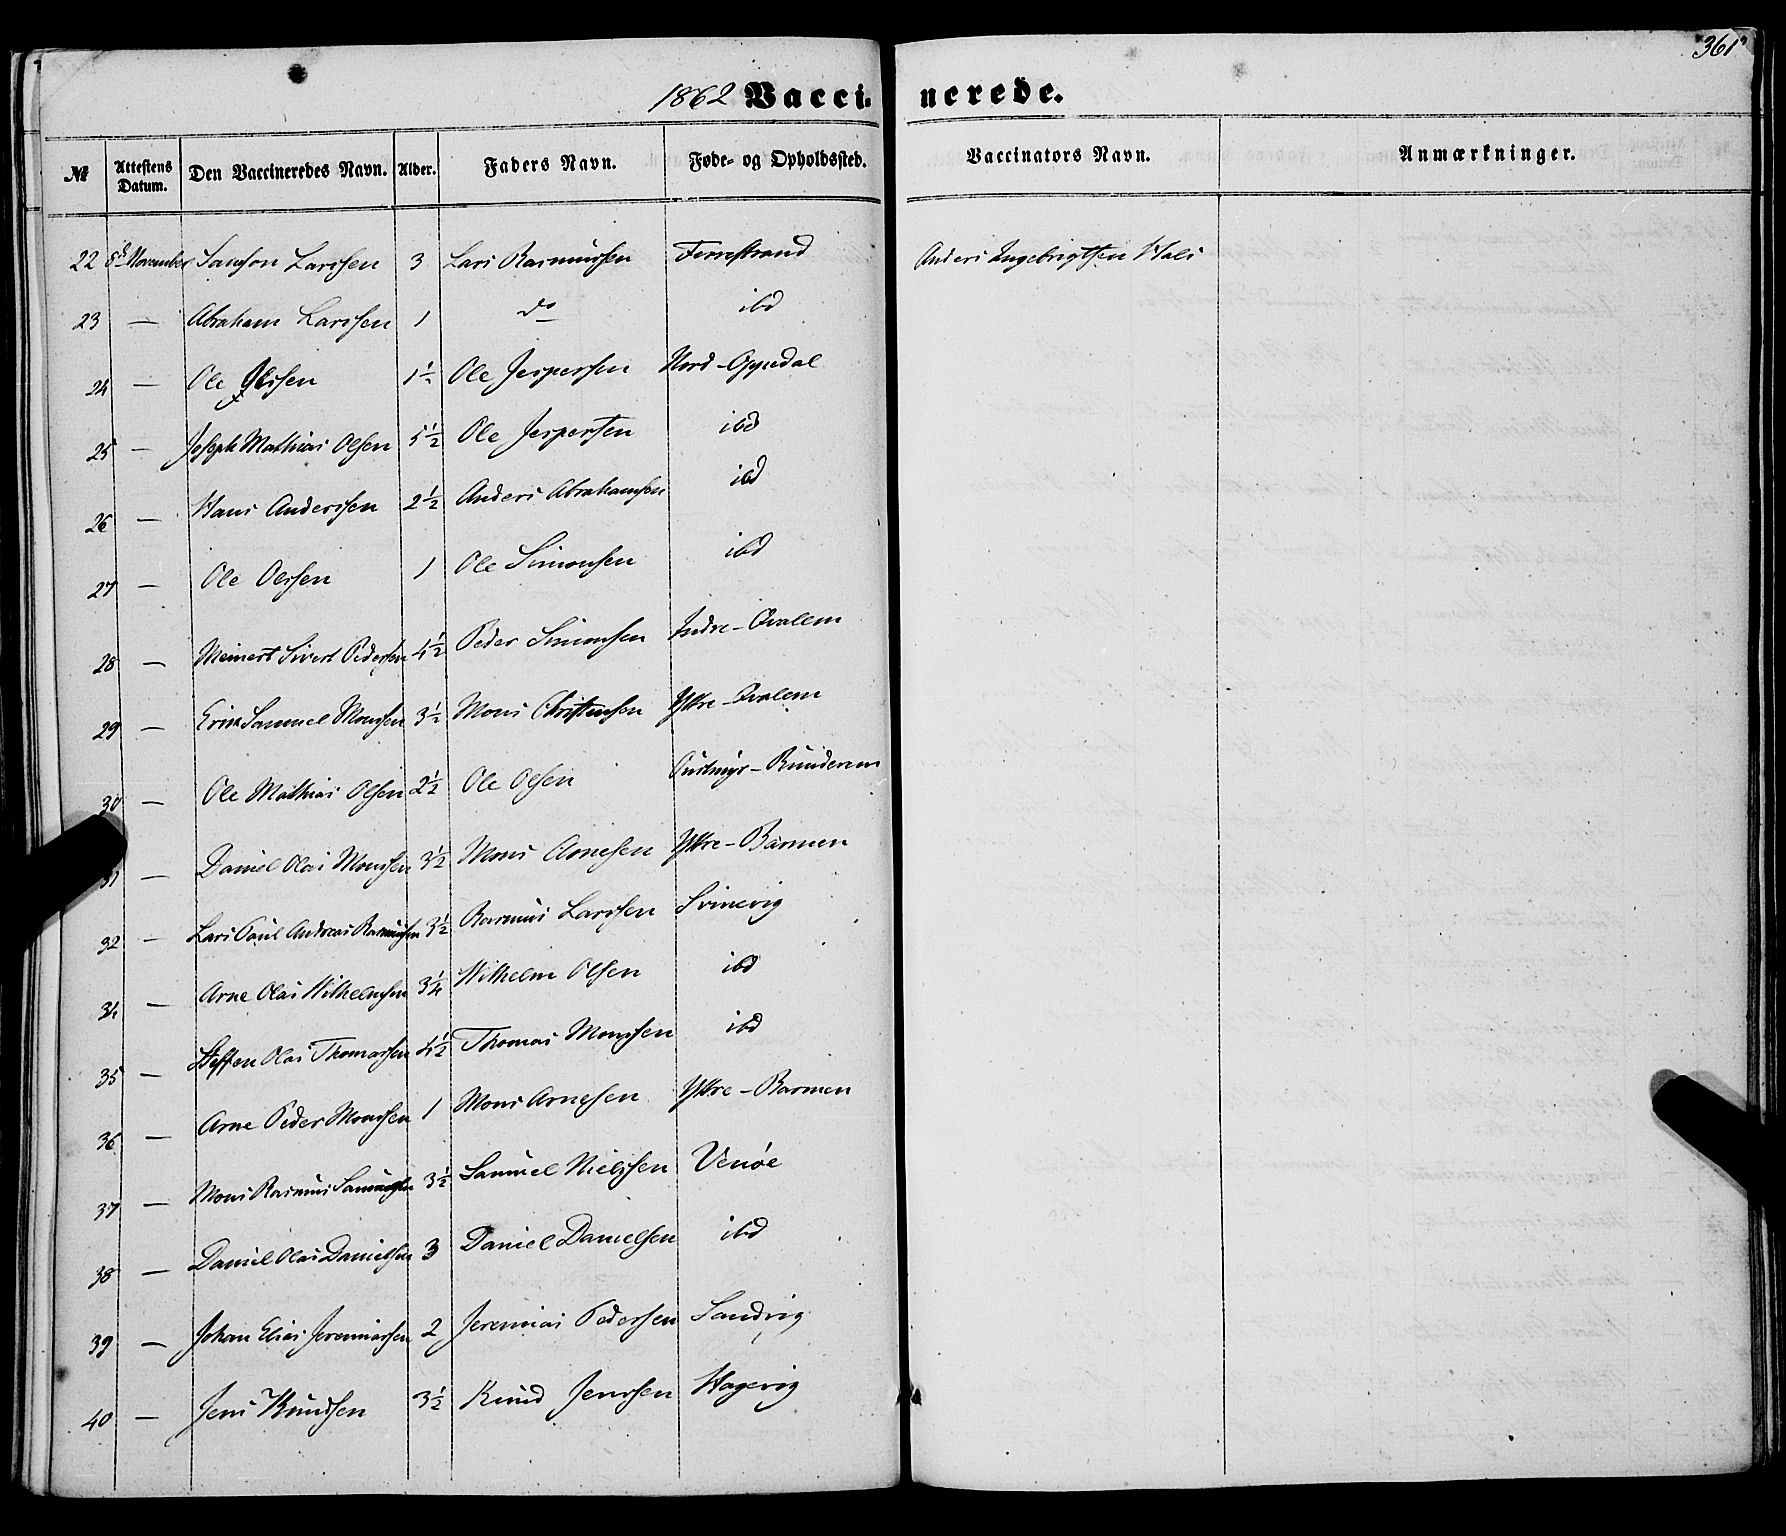 361
1862 Vaccinerede.
№ Attestens Datum. Den Vaccineredes Navn. Alder. Faders Navn. Føde- og Opholdssted. Vaccinators Navn. Anmærkninger.
22 5d November Samson Larssen 3 Lars Rasmussen Ferrestrand Anders Ingebrigtsen Hals
23 — Abraham Larssen 1 do ibd
24 — Ole Olssen 1½ Ole Jespersen Nord-Oppedal
25 — Joseph Mathias Olsen 5½ Ole Jespersen ibd
26 — Hans Anderssen 2½ Anders Abrahamsen ibd
27 — Ole Olssen 1 Ole Simonsen ibd
28 — Meinert Sivert Pedersen 4½ Peder Simonsen Indre-Qvalem
29 — Erik Samuel Monssen 3½ Mons Christensen Yttre-Qvalem
30 — Ole Mathias Olsen 2½ Ole Olsen Runderem
31 — Daniel Olai Monssen 3½ Mons Arnesen Yttre-Barmen
32 — Lars Paul Andreas Rasmussen 3½ Rasmus Larssen Svinevig
34 — Arne Olai Wilhelmsen 3¼ Wilhelm Olsen ibd
35 — Steffen Olai Thomassen 4½ Thomas Monssen ibd
36 — Arne Peder Monssen 1 Mons Arnesen Yttre-Barmen
37 — Mons Rasmus Samuelsen 3½ Samuel Nielssen Venøe
38 — Daniel Olai Danielsen 3 Daniel Danielsen ibd
39 — Johan Elias Jeremiassen 2 Jeremias Pederssen Sandvig
40 — Jens Knudsen 3½ Knud Jenssen Hagevig